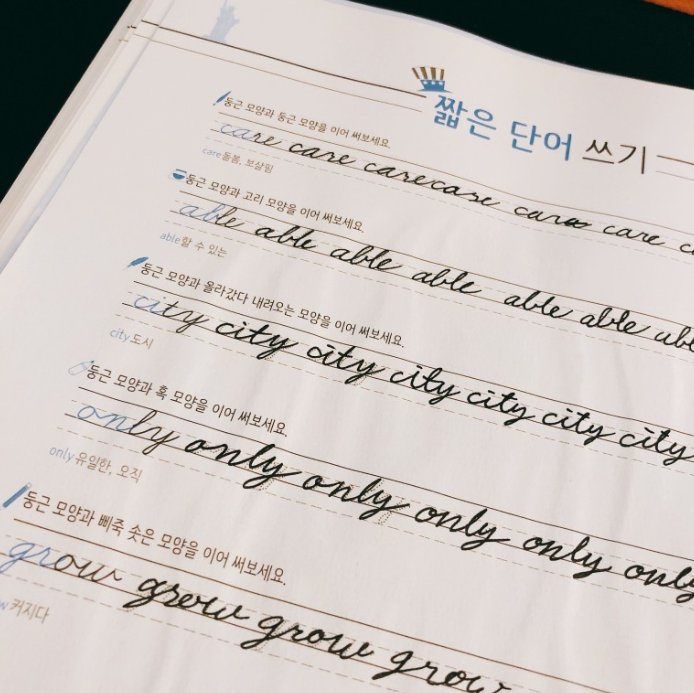 짧은 단어 쓰기
둥근 모양과 둥근 모양을 이어 써보세요.
care care carecare care care
care돌봄, 보살핌
둥근 모양과 고리 모양을 이어 써보세요.
able able able able able able able
able할 수 있는
둥근 모양과 올라갔다 내려오는 모양을 이어 써보세요.
city city city city city city city
city도시
둥근 모양과 혹 모양을 이어 써보세요.
only only only only only only
only유일한, 오직
둥근 모양과 삐죽 솟은 모양을 이어 써보세요.
grow grow grow grow
w커지다